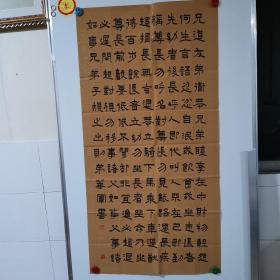 兄道友弟道恭兄弟睦孝在中財物輕怨
何生言語忍忿自泯或飲食或坐走長者
先幼者後長呼人即代叫人不在己即到
稱尊長勿呼名對尊長勿見能路遇長疾
趨揖長無言退恭立騎下馬乘下車過猶
待百步餘長者立幼勿坐長者坐命乃坐
尊長前聲要低低不聞卻非宜進必趨退
必遲問起對視勿移事諸父如事父事諸兄
如事兄弟子規之出則弟 書